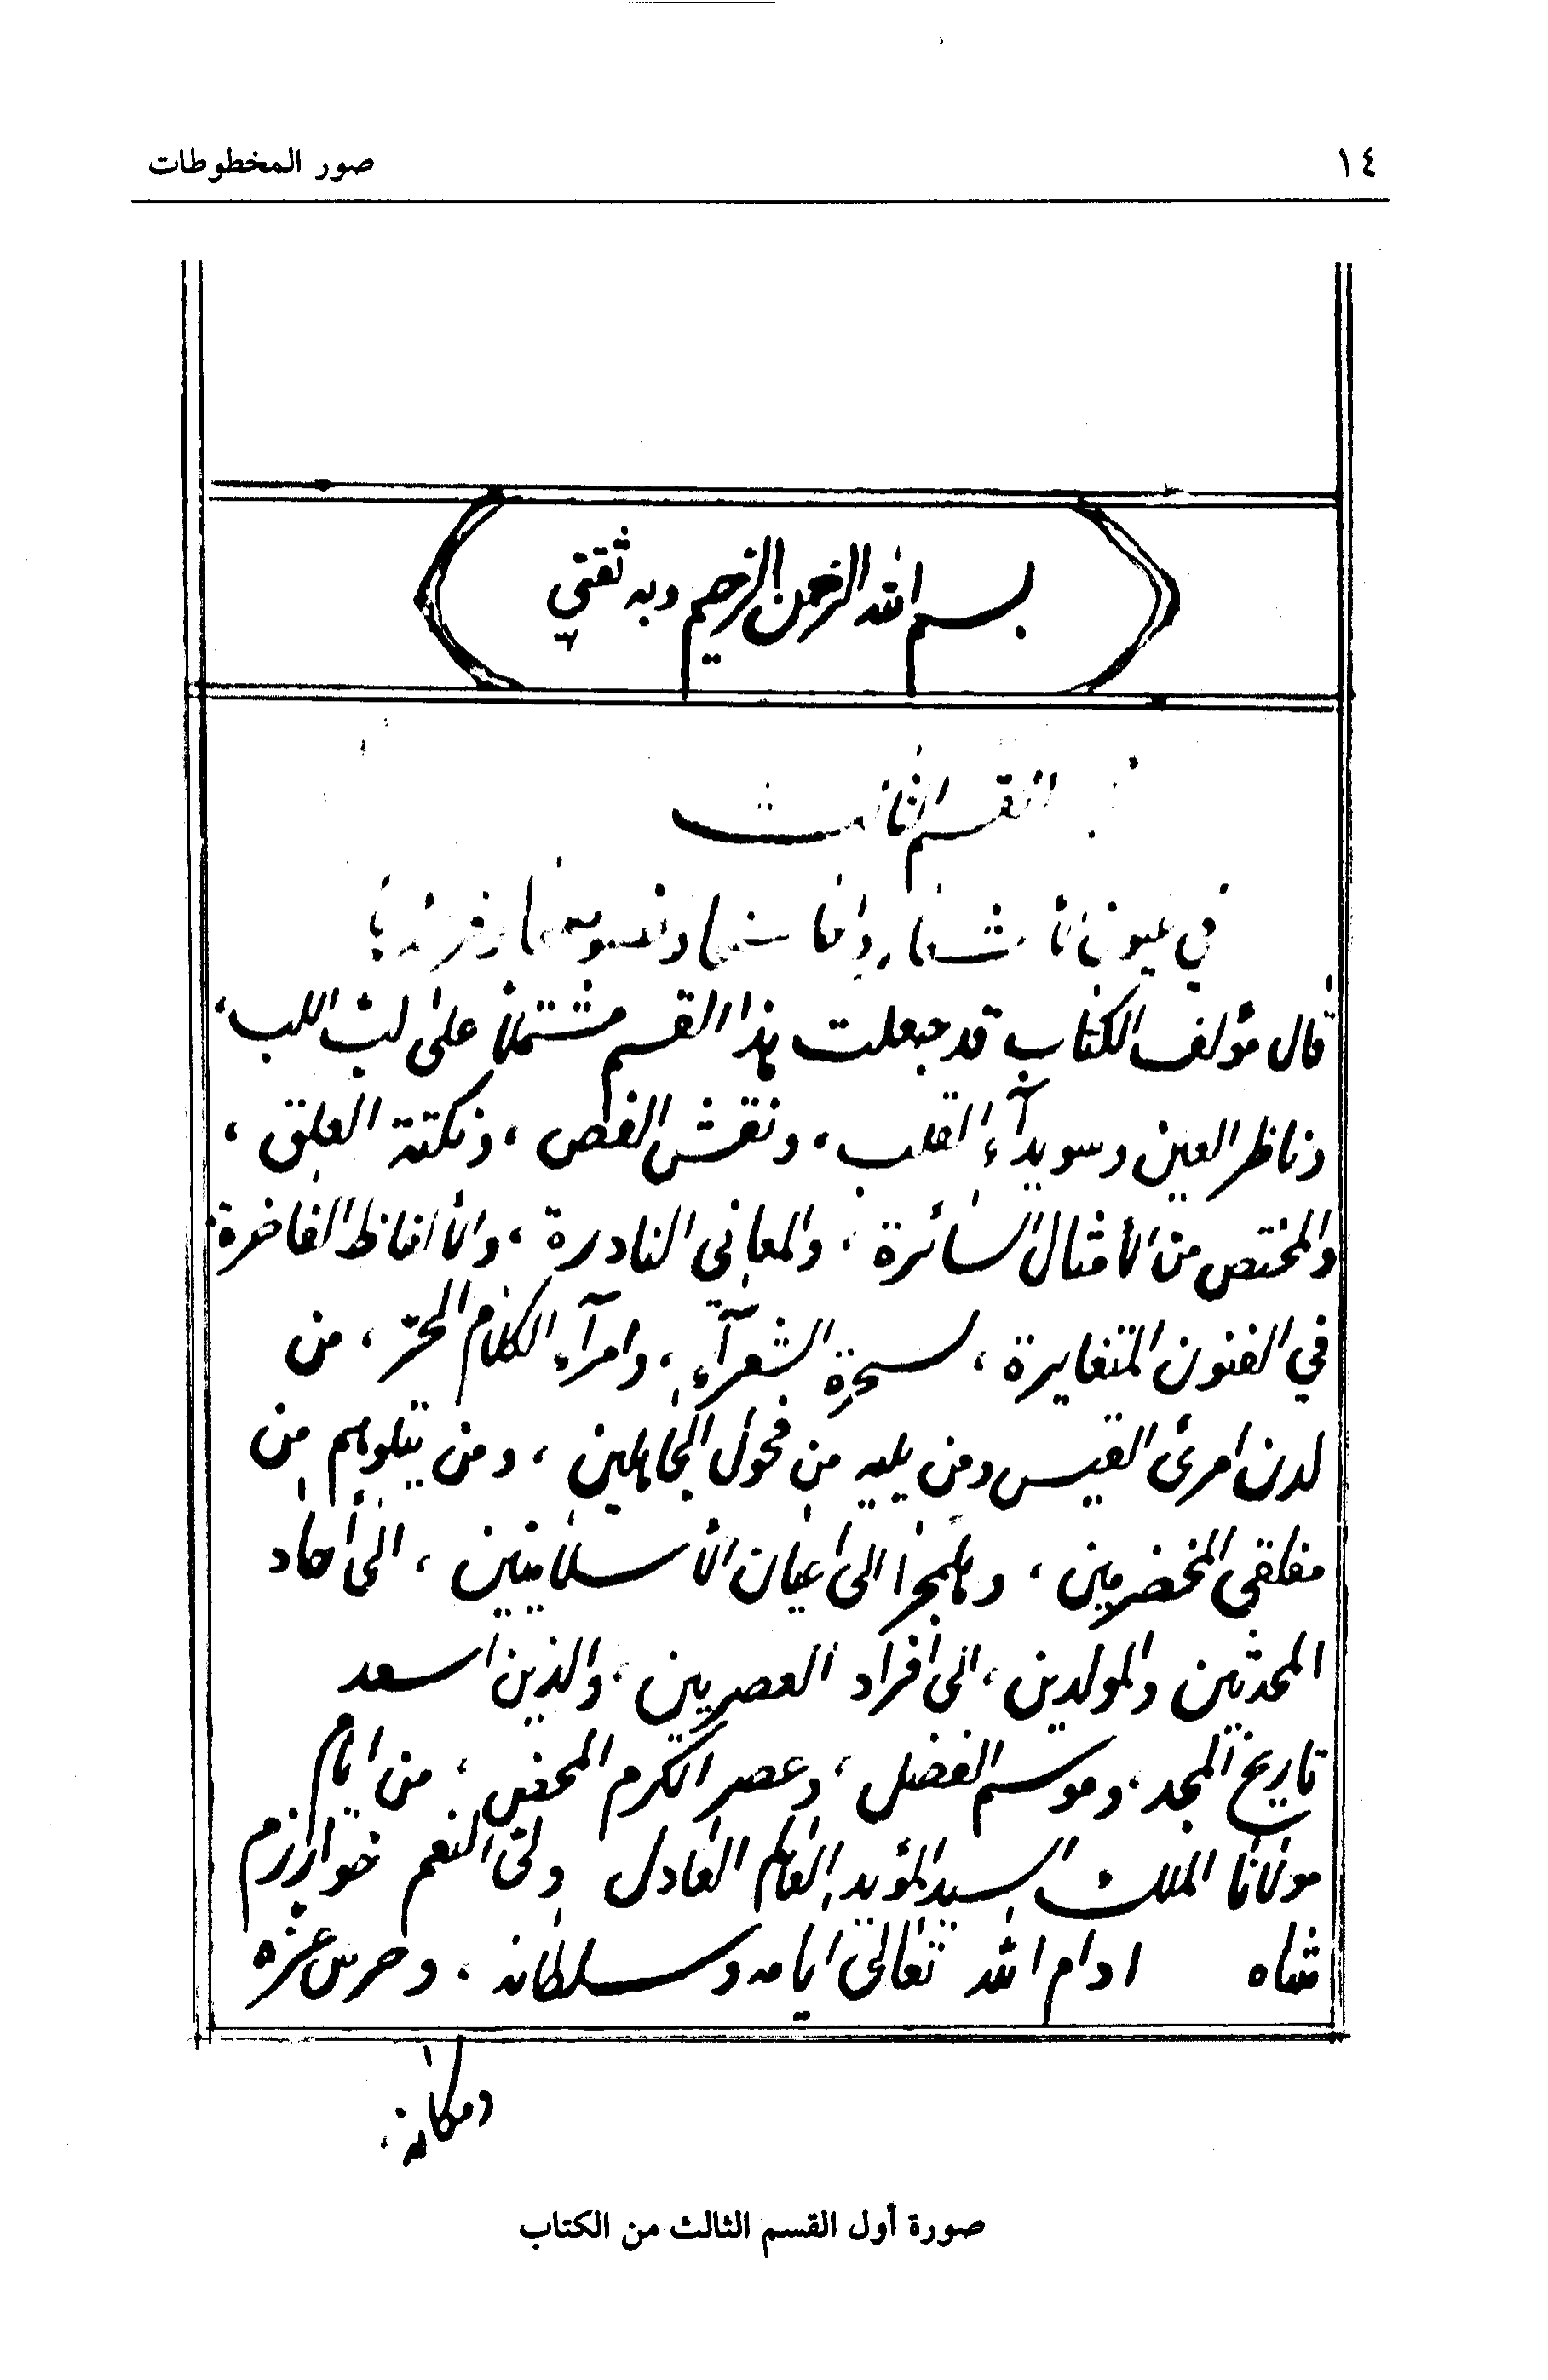 ١٤
صور المخطوطات
بسم الله الرحمن الرحيم وبه ثقتي
القسم الثالث
في عيون الأشعار وأحاسنها وفصوصها وفرائدها
قال مؤلف الكتاب قد جعلت هذا القسم مشتملا على لب اللب،
وناظر العين وسويدآء القلب، ونقش الفص، ونكتة العلق،
والمختص من الأمثال السائرة، والمعاني النادرة، والألفاظ الفاخرة
في الفنون المتغايرة، لسحرة الشعرآء، وامرآء الكلام الحر، من
لدن امرئ القيس ومن يليه من فحول الجاهلين، ومن يتلوهم من
مفلقي المخضرمين، وهلمجرا الى اعيان الأسلاميين، الى أحاد
المحدثين والمولدين، الى افراد العصريين، والذين اسعد
تاريخ المجد، وموسم الفضل، وعصر الكرم المحض، من ايام
مولانا الملك السيد المؤيد العالم العادل ولى النعم خوارزم
شاه ادام الله تعالى ايامه وسلطانه، وحرس عزه
ومكانه،
صورة أول القسم الثالث من الكتاب